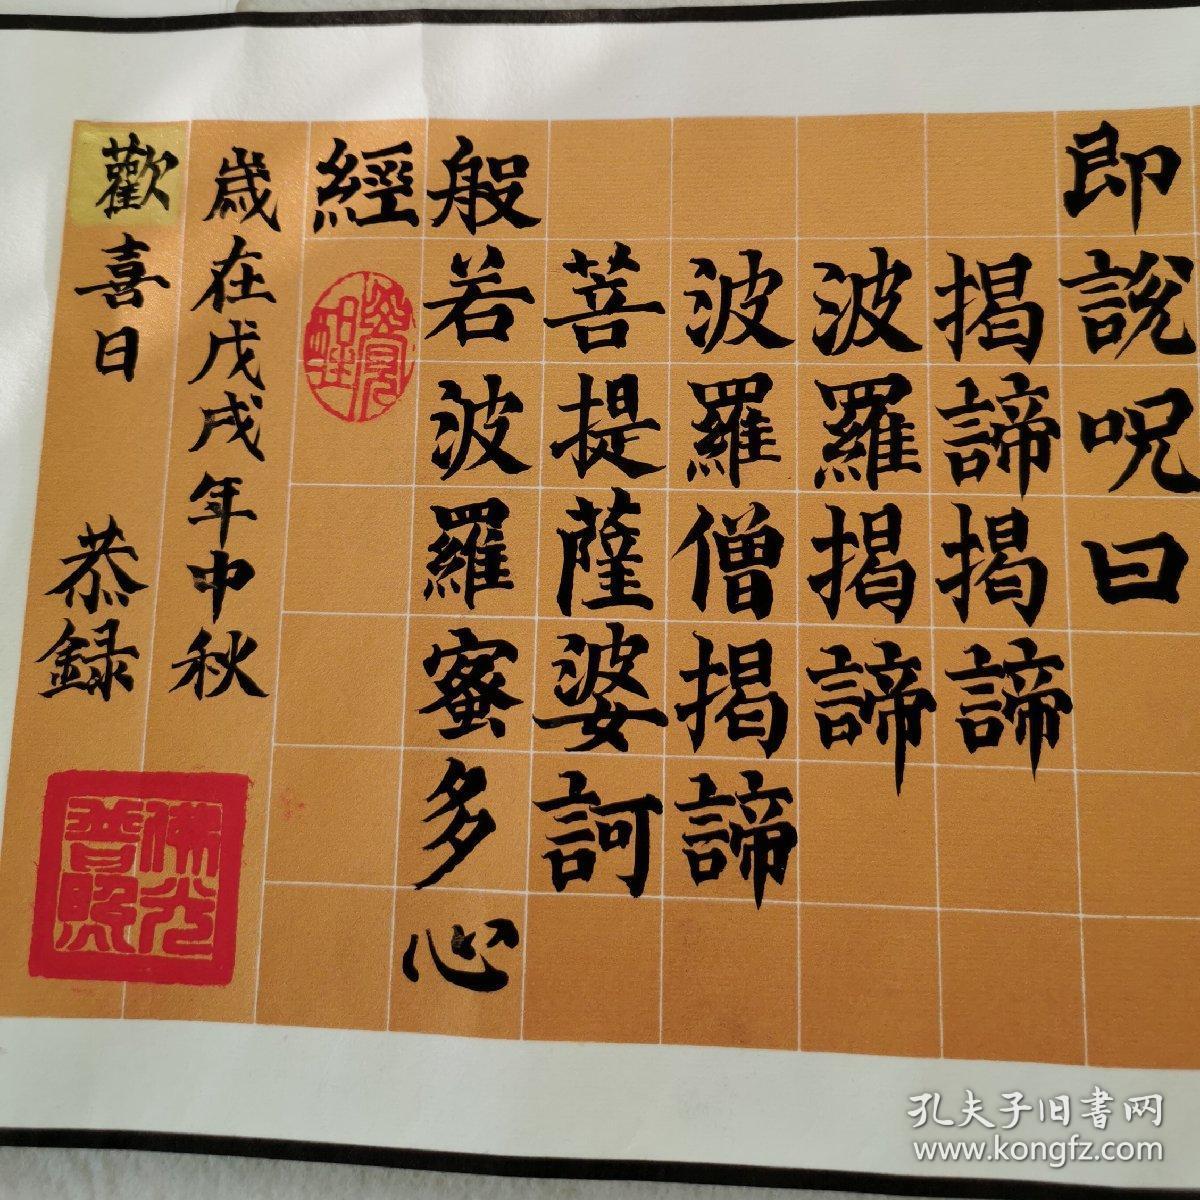 即說呪曰
揭諦揭諦
波羅揭諦
波羅僧揭諦
菩提薩婆訶
般若波羅蜜多心
經
歲在戊戌年中秋
歡喜日 恭録
佛光
普照
孔夫子旧书网
www.kongfz.com